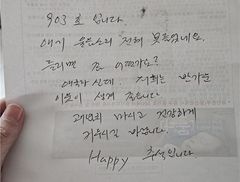 903 호 입니다.
애기 울음소리 전혀 못들었네요.
들리면 좀 어떤가요?
애국자 신데 저희는 반가운
이웃이 생겨 좋습니다
괘념치 마시고 건강하게
키우시길 바랍니다.
Happy 추석입니다.